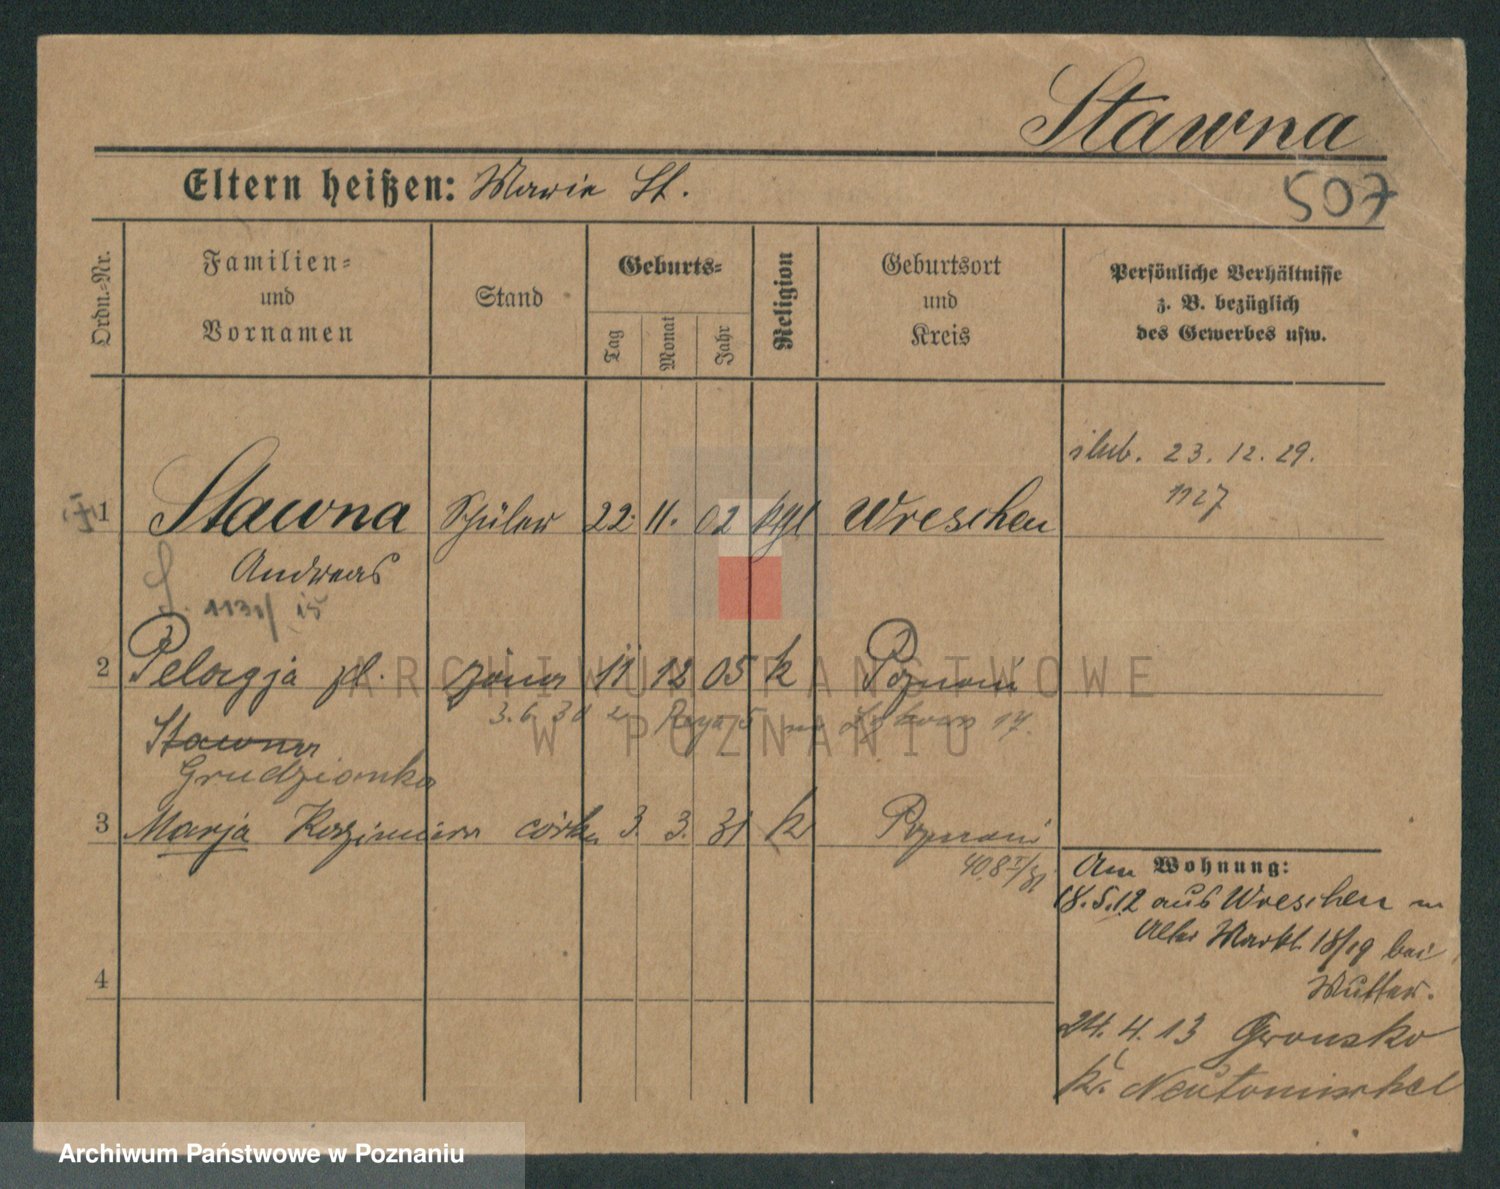 Stawna
Eltern heißen: Marie St.
507
Ordn.-Nr.
Familien-
und
Vornamen
Stand
Geburts-
Tag
Monat
Jahr
Religion
Geburtsort
und
Kreis
Persönliche Verhältnisse
z. B. bezüglich
des Gewerbes usw.
ślub. 23. 12. 29.
1127
1 Stawna Schüler 22. 11. 02 kthl Wreschen
Andreas
1131/15
2 Pelagja pl. żona 11 12 05 k Poznań
3. 6. 17.
Stawna
Grudzionka
3 Marja Kazimiera córka 3. 3. 31 k Poznań
4
Am Wohnung:
18.5.12 aus Wreschen
Alter Markt 18/19 bei
Mutter.
24. 4. 13 Gronsko
Kr. Neutomischel
ARCHIWUM PAŃSTWOWE
W POZNANIU
Archiwum Państwowe w Poznaniu